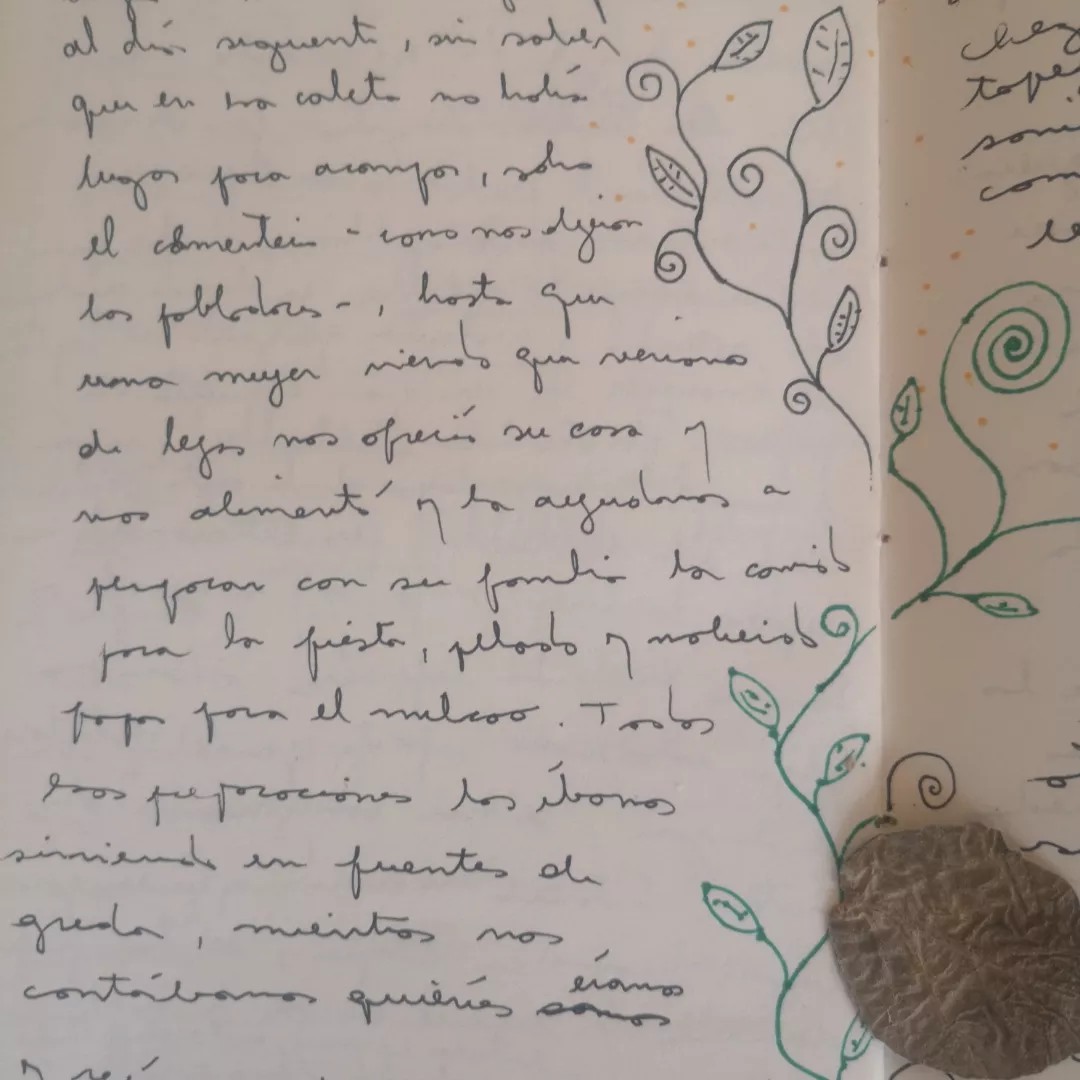 al día siguiente, sin saber
que en esa caleta no había
lugar para acampar, sólo
el cementerio - como nos dijeron
los pobladores -, hasta que
una mujer viendo que veníamos
de lejos nos ofreció su casa y
nos alimentó y la ayudamos a
preparar con su familia la comida
para la fiesta, pelando y moliendo
papas para el milcao. Todas
esas preparaciones las íbamos
sirviendo en fuentes de
greda, mientras nos
contábamos quiénes éramos
somos
y